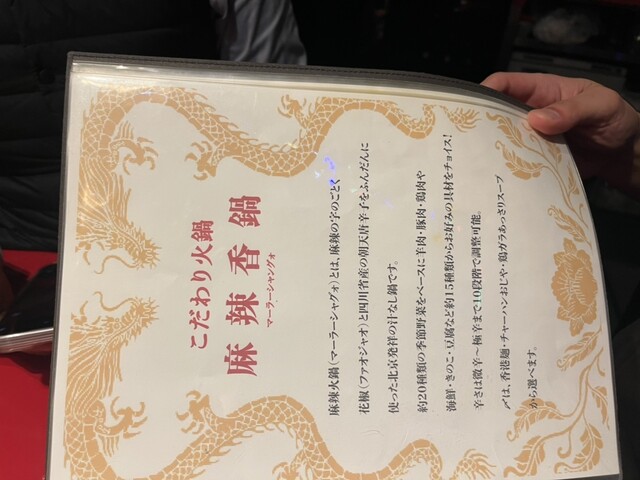 こだわり火鍋
麻辣香鍋
マーラーシャングォ
麻辣火鍋(マーラーシャグォ)とは、麻辣の字のごとく
花椒(ファオジャオ)と四川省産の朝天唐辛子をふんだんに
使った北京発祥の汁なし鍋です。
約20種類の季節野菜をベースに羊肉・豚肉・鶏肉や
海鮮・きのこ・豆腐など約15種類からお好みの具材をチョイス!
辛さは微辛~極辛まで10段階で調整可能。
〆は、香港麺・チャーハンおじや・鶏ガラあっさりスープ
から選べます。